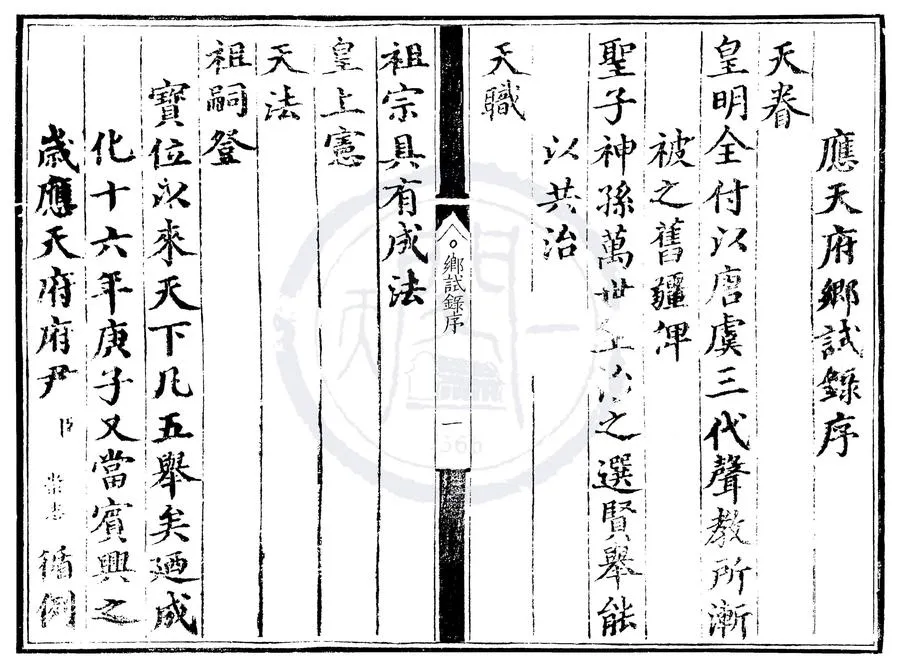 應天府鄉試錄序
天眷
皇明全付以唐虞三代聲教所漸
被之舊疆俾
聖子神孫萬世治之選賢舉能
以共治
天職
鄉試錄序 一
祖宗具有成法
皇上憲
天法
祖嗣登
寶位以來天下凡五舉矣廼成
化十六年庚子又當賓興之
歲應天府府尹臣崇志循例